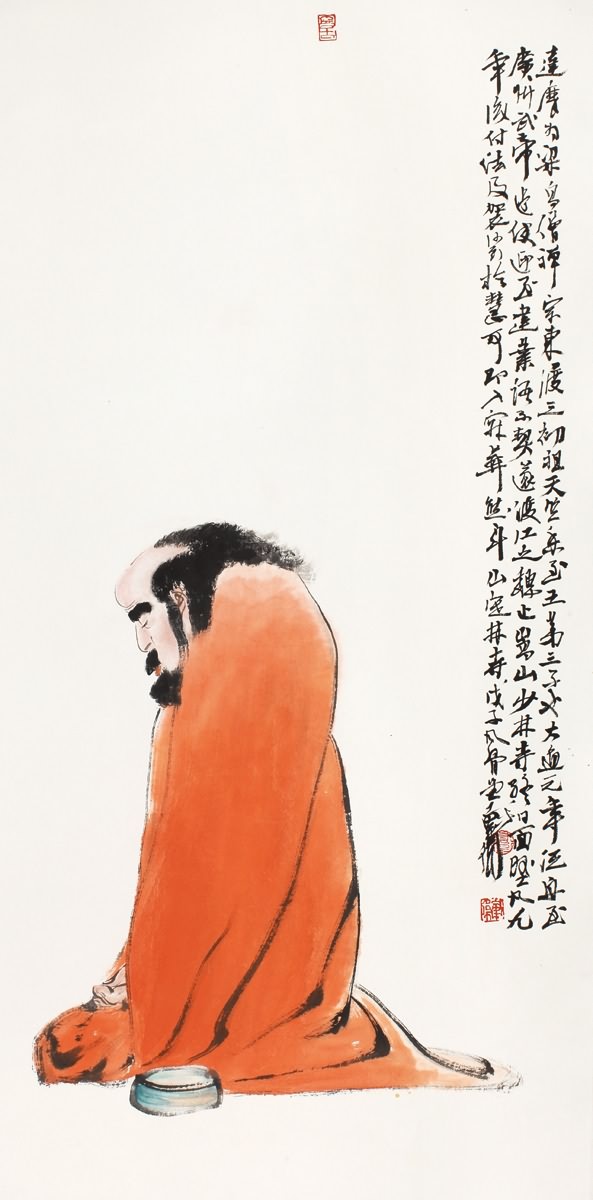 達摩為梁高僧禪宗東渡之初祖天竺香至王第三子也大通元年泛舟至
廣州武帝遣使迎至建業語不契遂渡江之魏止嵩山少林寺終日面壁九
年後付法及袈裟於慧可即入寂葬熊耳山定林寺戊子